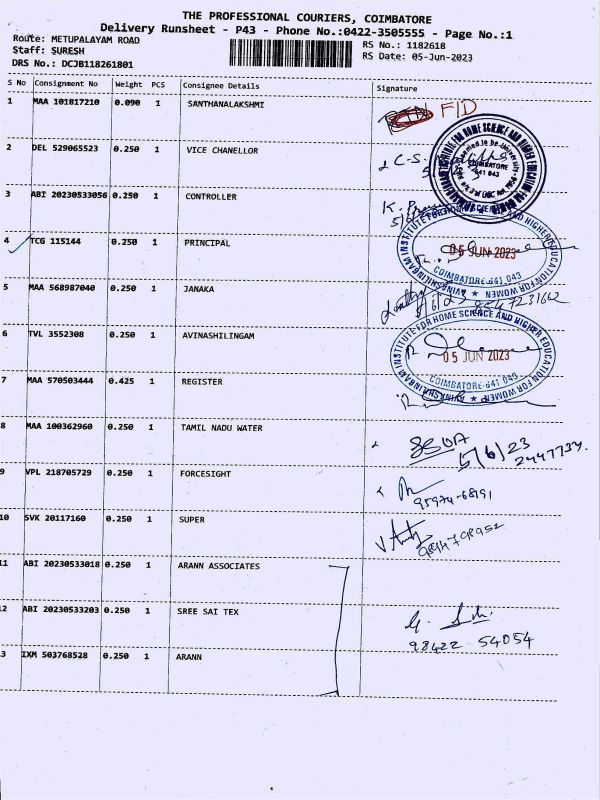 THE PROFESSIONAL COURIERS, COIMBATORE
Delivery Runsheet - P43 - Phone No.:0422-3505555 - Page No.:1
Route: METUPALAYAM ROAD
RS No.: 1182618
Staff: SURESH
RS Date: 05-Jun-2023
DRS No.: DCJB118261801
S No Consignment No Weight PCS Consignee Details Signature
1 MAA 101817210 0.090 1 SANTHANALAKSHMI F/D
2 DEL 529065523 0.250 1 VICE CHANELLOR
3 ABI 20230533056 0.250 1 CONTROLLER
4 TCG 115144 0.250 1 PRINCIPAL 05 JUN 2023
COIMBATORE-641 043
5 MAA 568987040 0.250 1 JANAKA
6 TVL 3552308 0.250 1 AVINASHILINGAM
INSTITUTE FOR HOME SCIENCE AND HIGHER EDUCATION FOR WOMEN
05 JUN 2023
COIMBATORE-641 043
7 MAA 570503444 0.425 1 REGISTER
8 MAA 100362960 0.250 1 TAMIL NADU WATER
5/6/23
2447734.
9 VPL 218705729 0.250 1 FORCESIGHT
95974-68191
10 SVK 20117160 0.250 1 SUPER
9894798952
11 ABI 20230533018 0.250 1 ARANN ASSOCIATES
12 ABI 20230533203 0.250 1 SREE SAI TEX
98422 54054
3 IXM 503768528 0.250 1 ARANN